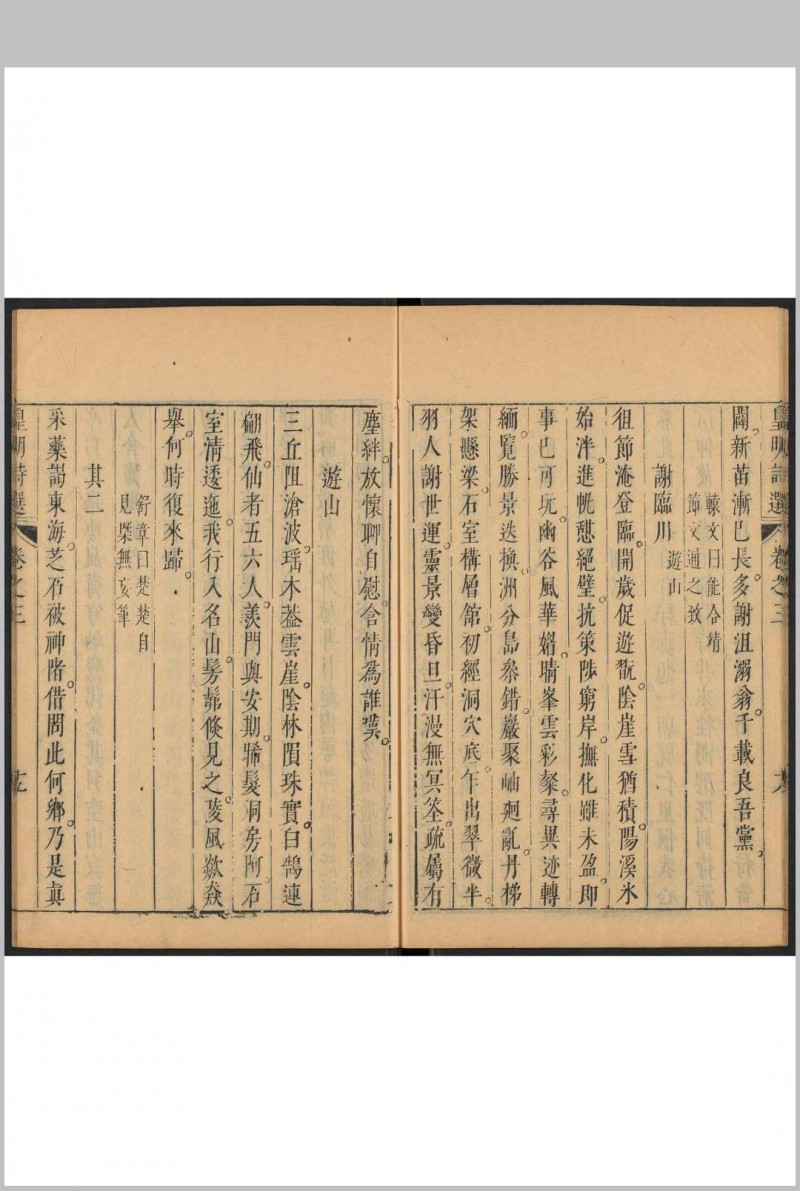 皇明詩選 卷之三
闢新苗漸已長多謝沮溺翁千載良吾黨
轅文曰能合靖
節文通之致
謝臨川 遊山
徂節淹登臨開歲促遊翫陰崖雪猶積陽溪氷
始泮進帆憩絕壁抗策陟窮岸撫化雖未盈即
事已可玩幽谷風華媚晴峯雲彩粲尋異迹轉
緬覽勝景迭換洲分島嶼錯巖聚岫廻亂丹梯
架懸梁石室構層館初經洞穴底乍出翠微半
羽人謝世運靈景變昏旦汗漫無冥筌疏屬有
塵絆放懷聊自慰含情為誰歎
遊山
三丘阻滄波瑤木蓋雲崖陰林隕珠實白鵠連
翩飛仙者五六人羨門與安期晞髮洞房阿石
室清逶迤我行入名山髣髴倏見之凌風欻森
舉何時復來歸
舒章曰楚楚自
見槩無妄筆
其二
采藥謁東海芝石被神陼借問此何鄉乃是真
皇明詩選 卷之三